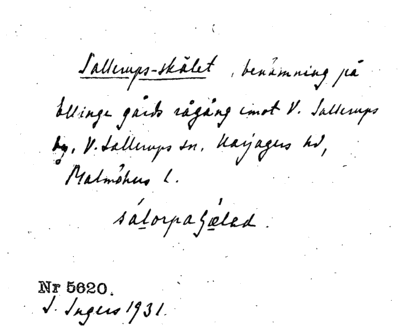 Sallerups-skälet, benämning på
Ellinge gårds rågång emot V. Sallerups
by, V. Sallerups sn. Harjagers hd,
Malmöhus l.
Nr 5620.
I. Ingers 1931.